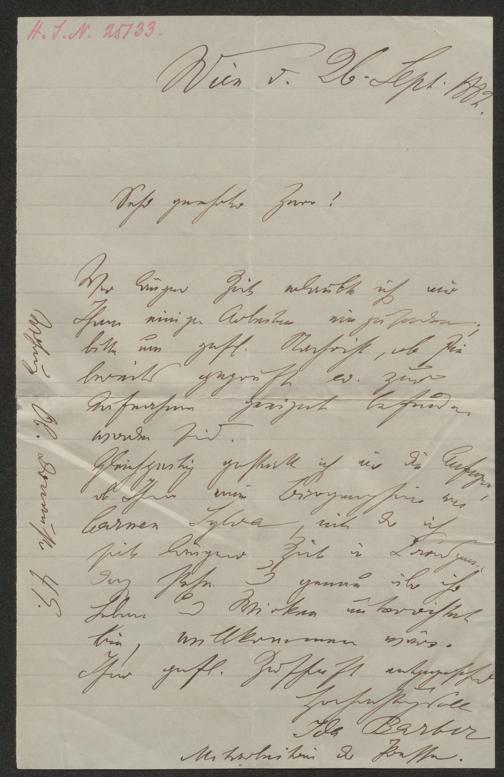 H. I. N. 25133.
Wien d. 26. Sept. 1882.
Sehr geehrter Herr!
Vor einiger Zeit erlaubte ich mir
Ihnen einige Arbeiten einzusenden,
bitte um gefl. Nachricht, ob sie
bereits geprüft ev. zur
Aufnahme geeignet befunden
worden sind.
Gleichzeitig gestatte ich mir die Anfrage,
ob Ihnen eine Biographie von
Carmen Sylva, mit der ich
seit längerer Zeit in
stehe & genau über ihr
Leben & Wirken unterrichtet
bin, willkommen wäre.
Ihrer gefl. Zuschrift entgegensehend
Hochachtungsvoll
Ida Barber
Mitarbeiterin der Presse.